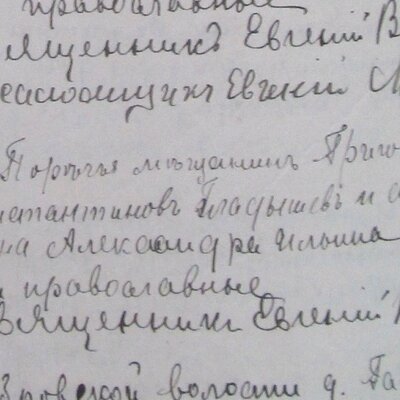 православные
Священникъ Евгеній В
саломщикъ Евгеній
Порѣчья мѣщанинъ Григо
нстантиновъ Гладышевъ и
на Александра Ильина
православные
Священникъ Евгеній
ровской волости д. Па